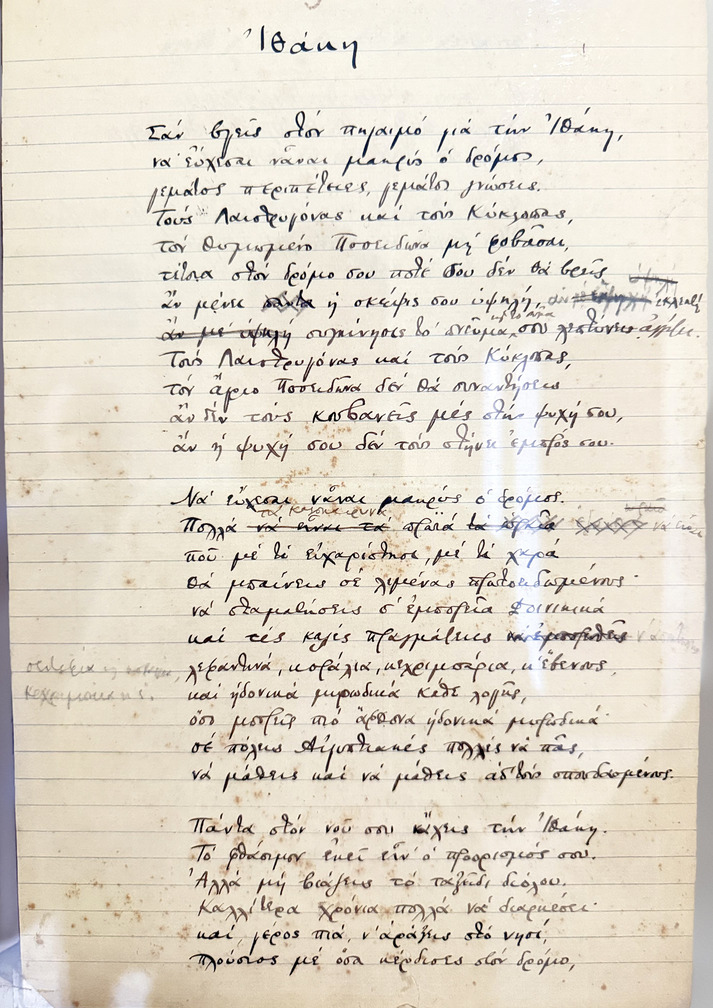 Ἰθάκη
Σὰν βγεῖς στὸν πηγαιμὸ γιὰ τὴν Ἰθάκη,
νὰ εὔχεσαι νἆναι μακρὺς ὁ δρόμος,
γεμάτος περιπέτειες, γεμάτος γνώσεις.
Τοὺς Λαιστρυγόνας καὶ τοὺς Κύκλωπας,
τὸν θυμωμένο Ποσειδῶνα μὴ φοβᾶσαι,
τέτοια στὸν δρόμο σου ποτέ σου δὲν θὰ βρεῖς
ἂν μένει ἡ σκέψις σου ὑψηλή, ἂν ἐκλεκτὴ
συγκίνησις τὸ πνεῦμα καὶ τὸ σῶμα σου ἀγγίζει.
Τοὺς Λαιστρυγόνας καὶ τοὺς Κύκλωπας,
τὸν ἄγριο Ποσειδῶνα δὲν θὰ συναντήσεις
ἂν δὲν τοὺς κουβανεῖς μὲς στὴν ψυχή σου,
ἂν ἡ ψυχή σου δὲν τοὺς στήνει ἐμπρός σου.
Νὰ εὔχεσαι νἆναι μακρὺς ὁ δρόμος.
Πολλὰ τὰ καλοκαιρινὰ πρωϊὰ νὰ εἶναι
ποῦ μὲ τί εὐχαρίστησι, μὲ τί χαρὰ
θὰ μπαίνεις σὲ λιμένας πρωτοειδωμένους·
νὰ σταματήσεις σ' ἐμπορεῖα Φοινικικὰ
καὶ τὲς καλὲς πραγμάτειες
κοράλλια, κεχριμπάρια, κ' ἔβενους,
καὶ ἡδονικὰ μυρωδικὰ κάθε λογῆς,
ὅσο μπορεῖς πιὸ ἄφθονα ἡδονικὰ μυρωδικά·
σὲ πόλεις Αἰγυπτιακὲς πολλὲς νὰ πᾶς,
νὰ μάθεις καὶ νὰ μάθεις ἀπ' τοὺς σπουδασμένους.
Πάντα στὸν νοῦ σου νἄχεις τὴν Ἰθάκη.
Τὸ φθάσιμον ἐκεῖ εἶν' ὁ προορισμός σου.
Ἀλλὰ μὴ βιάζεις τὸ ταξείδι διόλου.
Καλλίτερα χρόνια πολλὰ νὰ διαρκέσει·
καὶ, γέρος πιά, ν' ἀράξεις στὸ νησί,
πλούσιος μὲ ὅσα κέρδισες στὸν δρόμο,